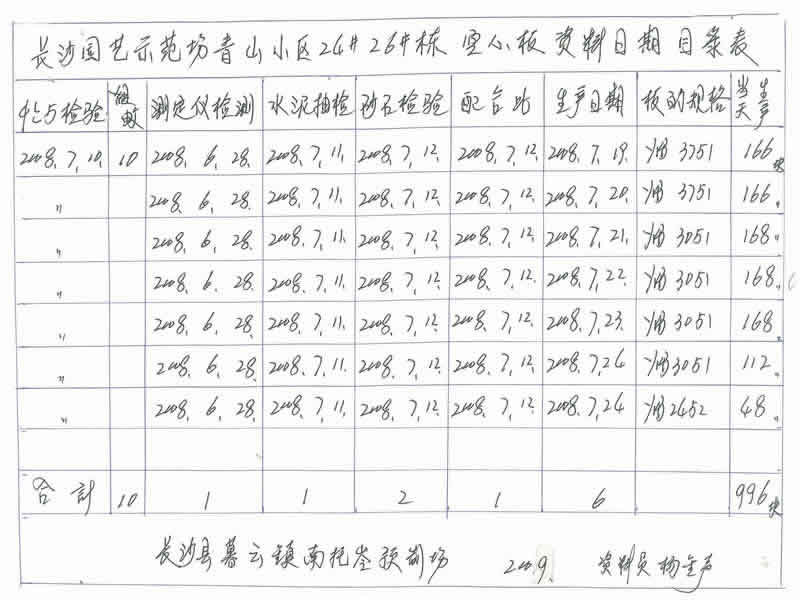 长沙园艺示范场青山小区24# 26#栋 空心板资料日期目录表
检验 组数 测定仪检测 水泥抽检 砂石检验 配合比 生产日期 板的规格 当天生产
2008.7.10. 10 2008.6.28. 2008.7.11. 2008.7.12. 2008.7.12. 2008.7.19. YKB 3751 166块
〃 2008.6.28. 2008.7.11. 2008.7.12. 2008.7.12. 2008.7.20. YKB 3751 166〃
〃 2008.6.28. 2008.7.11. 2008.7.12. 2008.7.12. 2008.7.21. YKB 3051 168〃
〃 2008.6.28. 2008.7.11. 2008.7.12. 2008.7.12. 2008.7.22. YKB 3051 168〃
〃 2008.6.28. 2008.7.11. 2008.7.12. 2008.7.12. 2008.7.23. YKB 3051 168〃
〃 2008.6.28. 2008.7.11. 2008.7.12. 2008.7.12. 2008.7.24 YKB 3051 112〃
〃 2008.6.28. 2008.7.11. 2008.7.12. 2008.7.12. 2008.7.24 YKB 2452 48〃
合計 10 1 1 2 1 6 996块
长沙县暮云镇南托岺预制场 2009. 资料员 杨金声